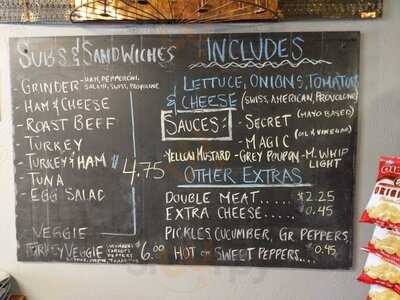 SUBS & SANDWICHES
- GRINDER - HAM, PEPPERONI,
SALAMI, SWISS, PROVOLONE
- HAM & CHEESE
- ROAST BEEF
- TURKEY
- TURKEY & HAM $4.75
- TUNA
- EGG SALAD
VEGGIE
TURKEY VEGGIE $6.00
INCLUDES
LETTUCE, ONIONS, TOMATOES
& CHEESE (SWISS, AMERICAN, PROVOLONE)
SAUCES: - SECRET (MAYO BASED)
- MAGIC (OIL & VINEGAR)
- YELLOW MUSTARD - GREY POUPON - M. WHIP
LIGHT
OTHER EXTRAS
DOUBLE MEAT..... $2.25
EXTRA CHEESE.... $0.45
PICKLES, CUCUMBER, GR. PEPPERS,
HOT OR SWEET PEPPERS.... $0.45